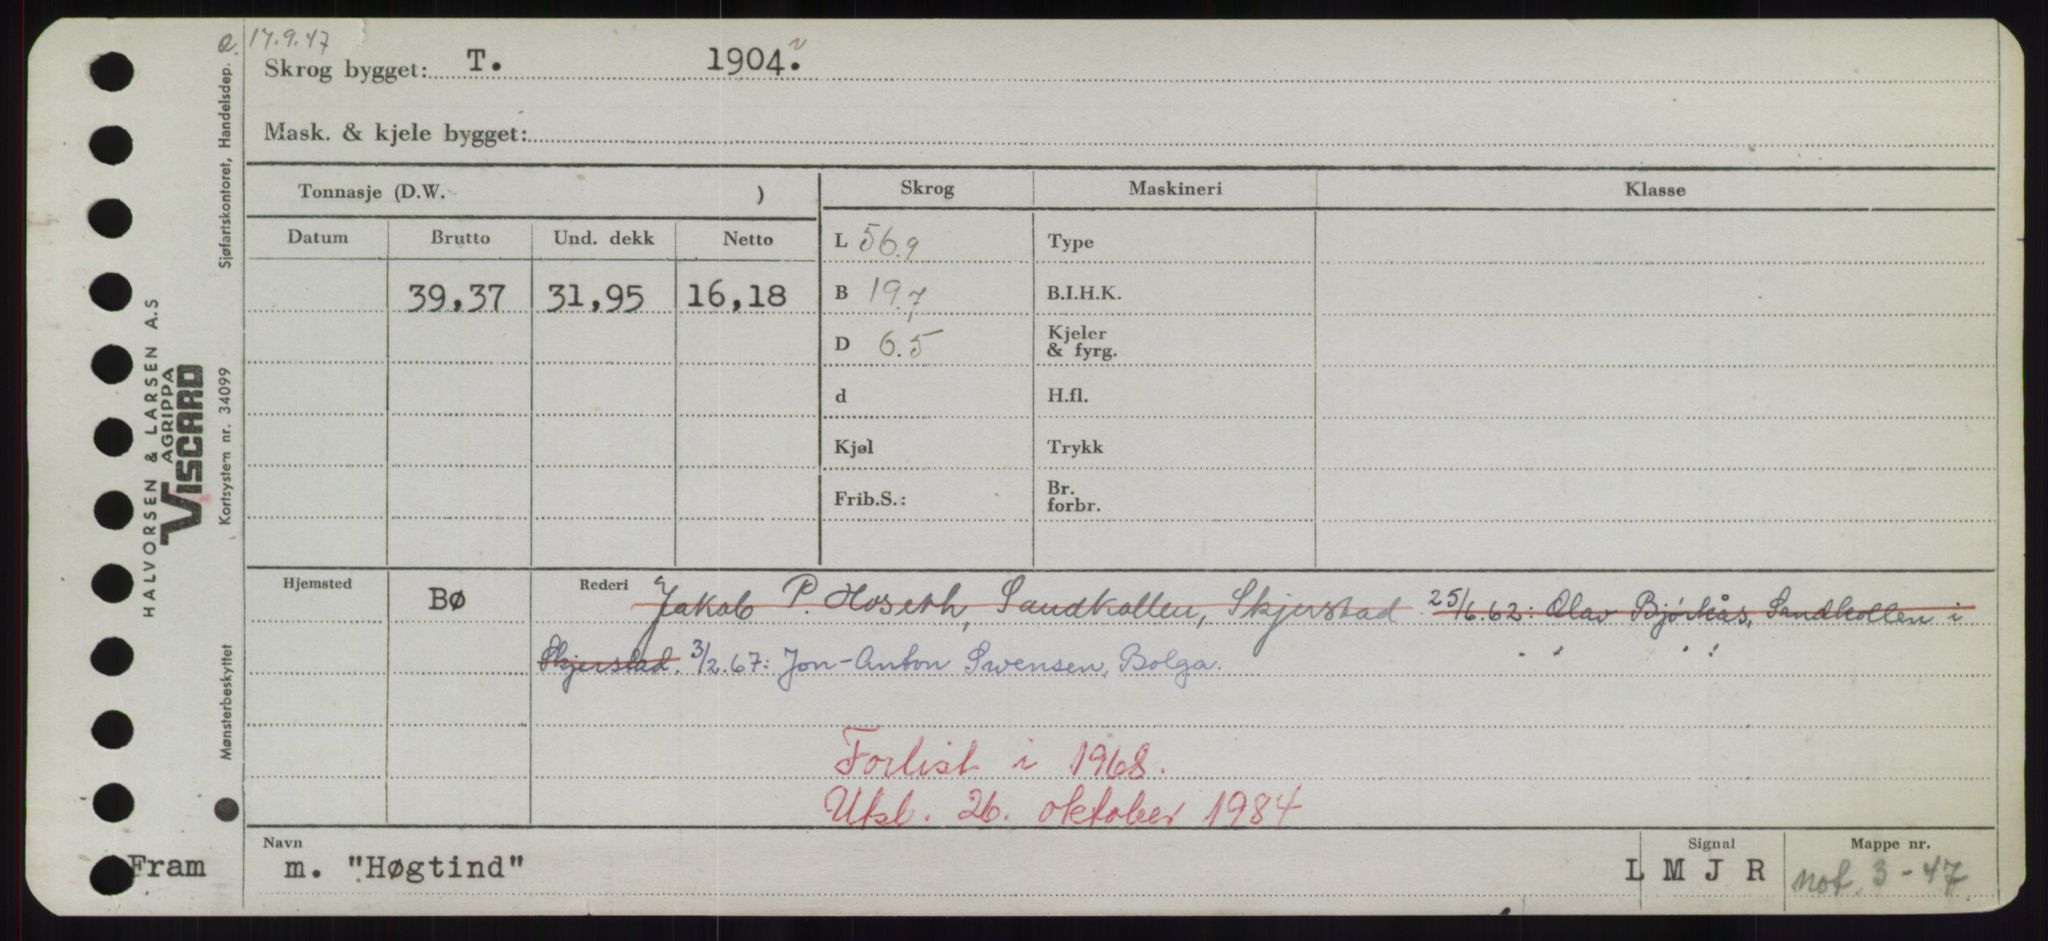 17.9.47
Skrog bygget: T. 1904.
Mask. & kjele bygget:
Tonnasje (D.W. )
Skrog Maskineri Klasse
Datum Brutto Und. dekk Netto
L 56.9 Type
39,37 31,95 16,18
B 19.7 B.I.H.K.
D 6.5 Kjeler & fyrg.
d H.fl.
Kjøl Trykk
Frib.S.: Br. forbr.
Hjemsted Bø Rederi Jakob P. Hoseth, Sandkollen, Skjerstad 25/6.62: Olav Bjørkås, Sandkollen i
Skjerstad. 3/2.67: Jon-Anton Svensen, Bolga.
Forlist i 1968.
Utsl. 26. oktober 1984
Navn Signal Mappe nr.
Fram m. "Høgtind" L M J R not. 3-47
HALVORSEN & LARSEN A.S
AGRIPPA
VISCARD
Sjøfartskontoret, Handelsdep.
Kortsystem nr. 34099
Mønsterbeskyttet